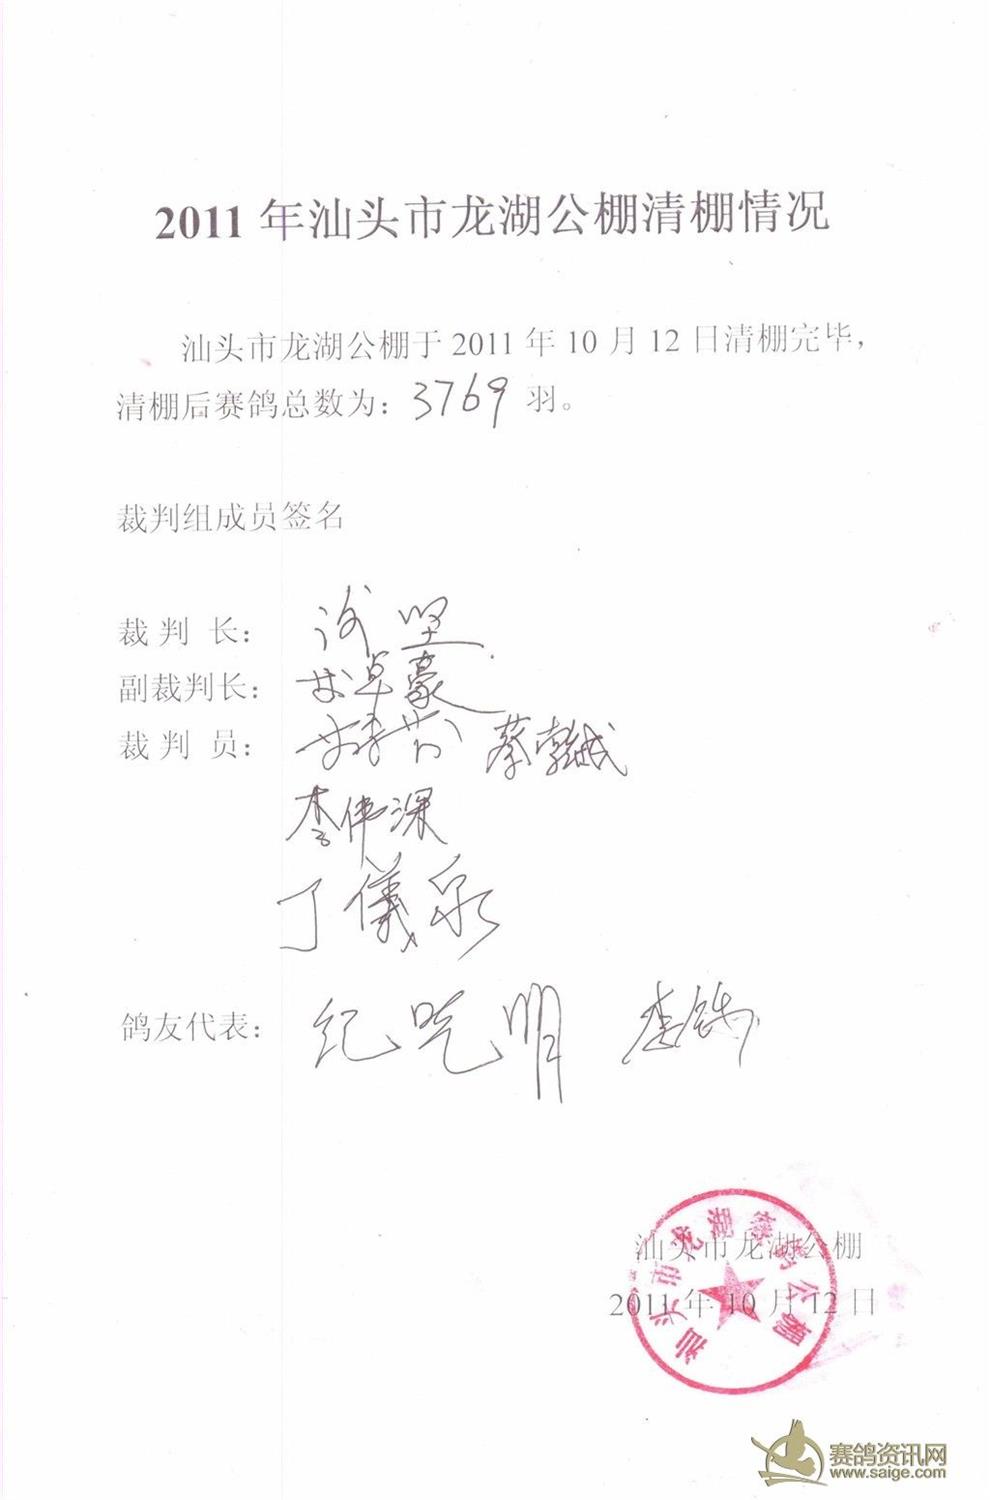 2011年汕头市龙湖公棚清棚情况
汕头市龙湖公棚于2011年10月12日清棚完毕，
清棚后赛鸽总数为：3769羽。
裁判组成员签名
裁 判 长：坚
副裁判长：林卓豪
裁 判 员：蔡
李伟深
丁儀泉
鸽友代表：纪 明 李
汕头市龙湖公棚
2011年10月12日
汕头市龙湖赛鸽公棚
赛鸽资讯网
www.saige.com